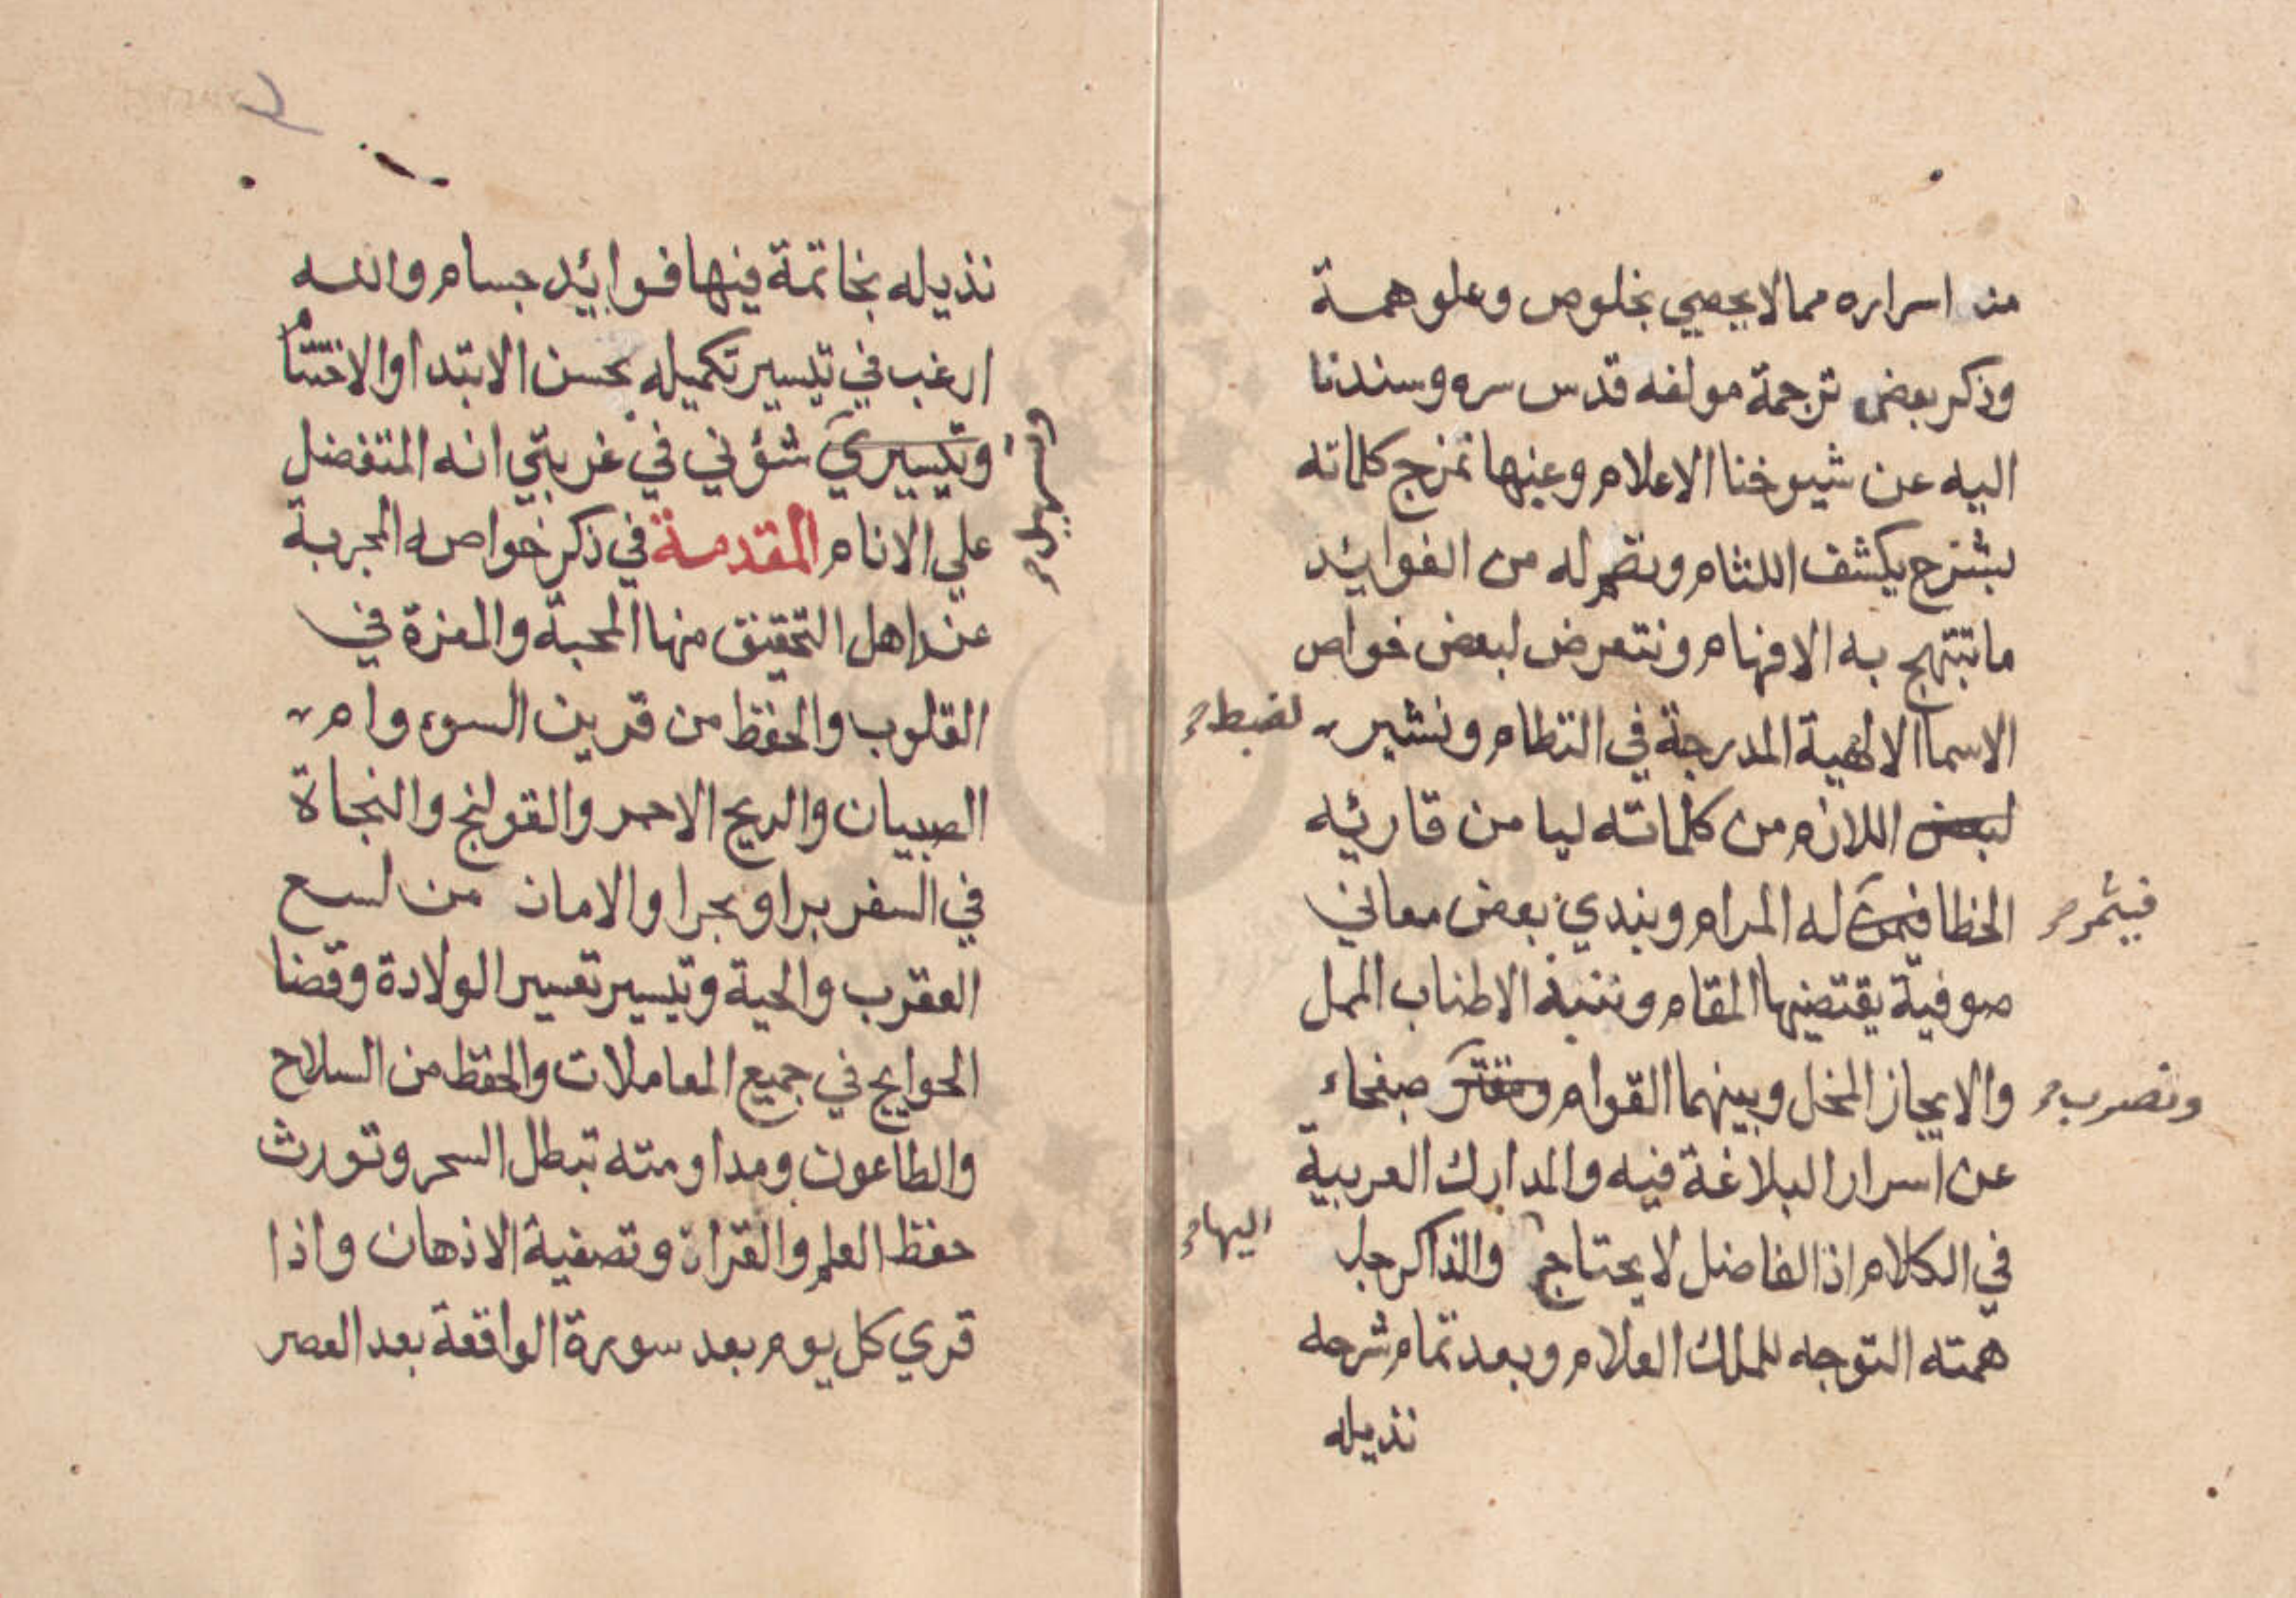 من اسراره مما لا يحصي بخلوص وعلو همة
وذكر بعض ترجمة مولفه قدس سره وسندنا
اليه عن شيوخنا الاعلام وعينها نمزج كلماته
بشرح يكشف اللثام ونضم له من الفوائد
ما تبتهج به الافهام ونتعرض لبعض خواص
الاسما الالهية المدرجة في النظام ونشير
لضبط
لبعض اللازم من كلماته ليا من قاريه
الخطا له المرام ونبدي بعض معاني
فيثمر
صوفية يقتضيها المقام ونتنبه الاطناب الممل
والايجاز المخل وبينهما القوام صفحاء
ونضرب
عن اسرار البلاغة فيه والمدارك العربية
في الكلام اذ الفاضل لا يحتاج والذاكر جل
اليها
همته التوجه للملك العلام وبعد تمام شرحه
نذيله
نذيله بخاتمة فيها فوائد جسام والله
ارغب في تيسير تكميله بحسن الابتدا والاختتام
وتيسيري شؤني في غربتي انه المتفضل
وتسهيل
علي الانام المقدمة في ذكر خواصه المجربة
عند اهل التحقيق منها المحبة والمعزة في
القلوب والحفظ من قرين السوء وام
الصبيان والريح الاحمر والقولنج والنجاة
في السفر برا وبحرا والامان من لسع
العقرب والحية وتيسير تعسير الولادة وقضا
الحوايج في جميع المعاملات والحفظ من السلاح
والطاعون ومداومته تبطل السحر وتورث
حفظ العلم والقران وتصفية الاذهان واذا
قري كل يوم بعد سورة الواقعة بعد العصر